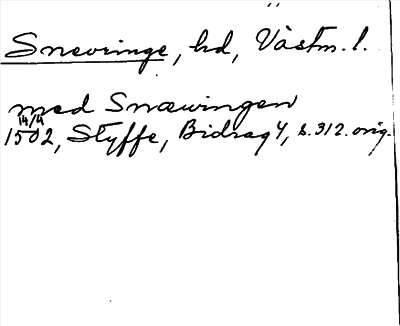 Snevringe, hd, Västm. l.
med Snævingen
14/4
1502, Styffe, Bidrag 4, s. 312. orig.